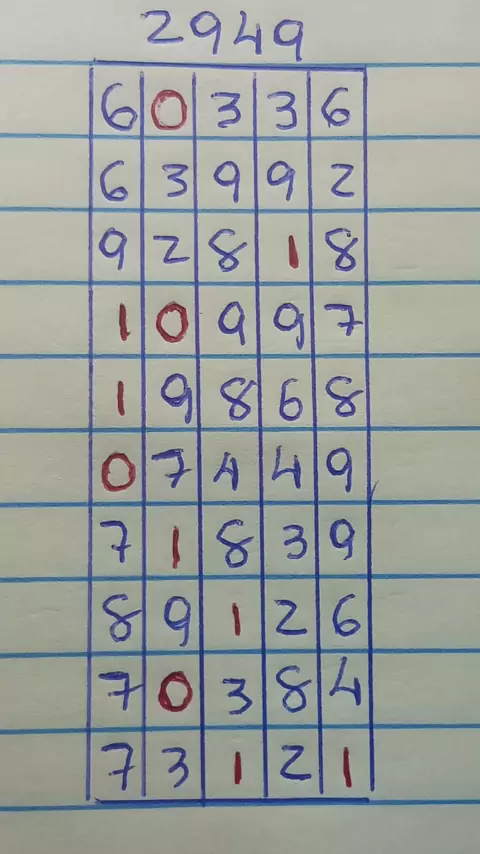 2949
6 0 3 3 6
6 3 9 9 2
9 2 8 1 8
1 0 9 9 7
1 9 8 6 8
0 7 4 4 9
7 1 8 3 9
8 9 1 2 6
7 0 3 8 4
7 3 1 2 1